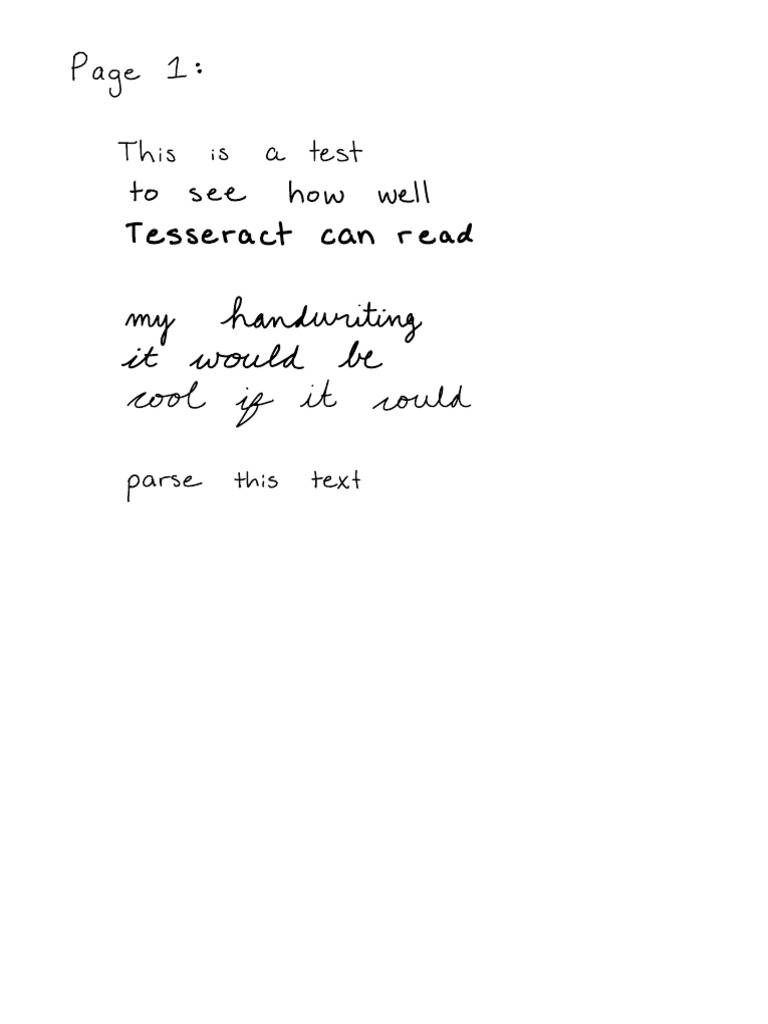 Page 1:
This is a test
to see how well
Tesseract can read
my handwriting
it would be
cool if it could
parse this text